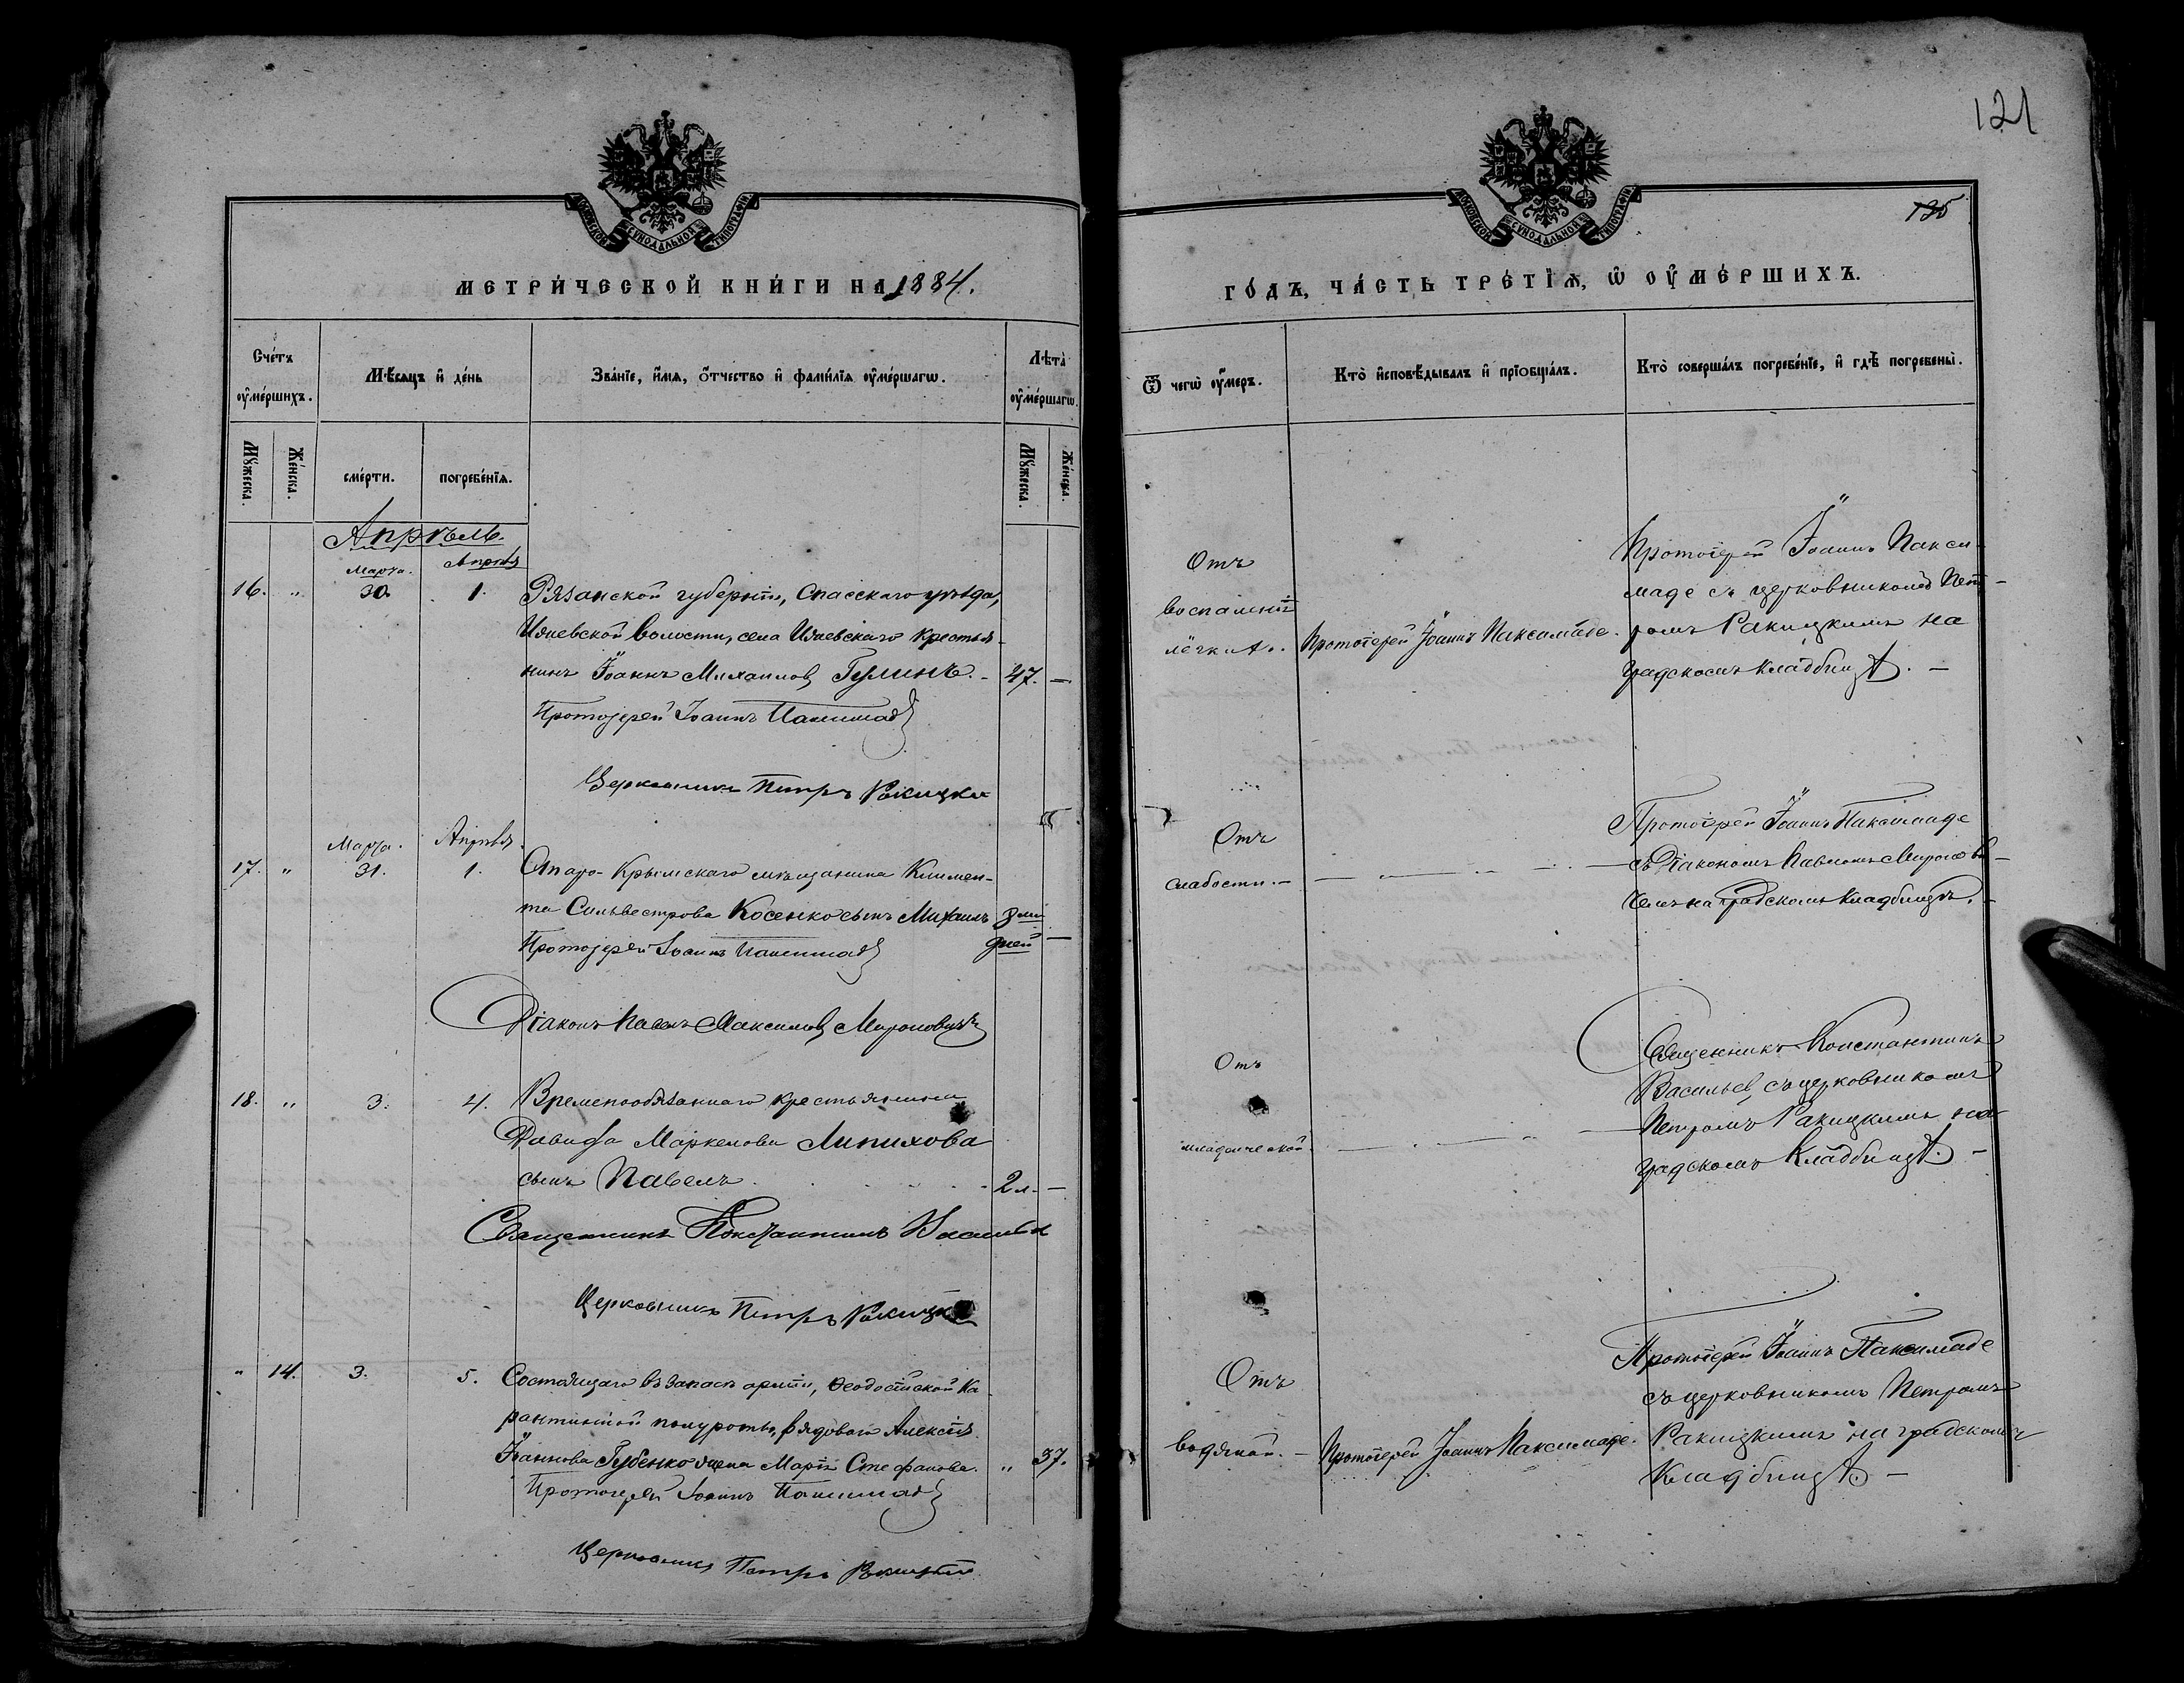 121
135
МОСКОВСКОЙ СѴНОДАЛЬНОЙ ТИПОГРАФІИ
МОСКОВСКОЙ СѴНОДАЛЬНОЙ ТИПОГРАФІИ
МЕТРИ́ЧЕСКОЙ КНИ́ГИ НА 1884.
ГО́ДЪ, ЧА́СТЬ ТРЕ́ТІѦ, Ѡ ОУ҆МЕ́РШИХЪ.
Сче́тъ оу҆ме́ршихъ.
Мѣ́сяцъ и҆ де́нь
Зва́нїе, и҆́мѧ, ѻ҆́тчество и҆ фами́лїѧ оу҆ме́ршагѡ.
Лѣта̀ оу҆ме́ршагѡ.
Ѿ чегѡ̀ оу҆́меръ.
Кто̀ и҆сповѣ́дывалъ и҆ прїобща́лъ.
Кто̀ соверша́лъ погребе́нїе, и҆ гдѣ̀ погребены̀.
Му́жеска.
Же́нска.
сме́рти.
погребе́нїѧ.
Му́жеска.
Же́нска.
Апрѣль.
Марта. Апрѣля
16. " 30. 1. Рязанской губерніи, Спасскаго уѣзда,
Ижевской волости, села Ижевскаго крестья-
нинъ Іоаннъ Михаиловъ Гулинъ. - 47. —
Протоіерей Іоаннъ Паксимад
Церковникъ Петръ Ракицкі
Отъ
воспаленія
лёгкихъ.
Протоіерей Іоаннъ Паксимаде.
Протоіерей Іоаннъ Пакси-
маде съ церковникомъ Пет-
ромъ Ракицкимъ на
градскомъ кладбищѣ. —
Марта. Апрѣля.
17. " 31. 1. Старо-Крымскаго мѣщанина Климен-
та Сильвестрова Косенко сынъ Михаилъ
дней —
Протоіерей Іоаннъ Паксимад
Діаконъ Павелъ Максимовъ Мироновичъ
Отъ
слабости. —
Протоіерей Іоаннъ Паксимаде
съ Діакономъ Павломъ Миронови-
чемъ на градскомъ кладбищѣ. —
18. " 3. 4. Временнообязаннаго крестьянина
Давида Маркелова Липихова
сынъ Павелъ. - 2 л. —
Священникъ Константинъ Васильевъ
Церковникъ Петръ Ракицкі
Отъ
младенческой.
Священникъ Константинъ
Васильевъ, съ церковникомъ
Петромъ Ракицкимъ на
градскомъ кладбищѣ. —
" 14. 3. 5. Состоящаго въ запасѣ арміи, Ѳеодосійской Ка-
рантинной полуроты, рядоваго Алексѣя
Іоаннова Губенко жена Марія Стефанова. " 37.
Протоіерей Іоаннъ Паксимад
Церковникъ Петръ Ракицкій
Отъ
водяной. —
Протоіерей Іоаннъ Паксимаде.
Протоіерей Іоаннъ Паксимаде
съ церковникомъ Петромъ
Ракицкимъ на градскомъ
кладбищѣ. —